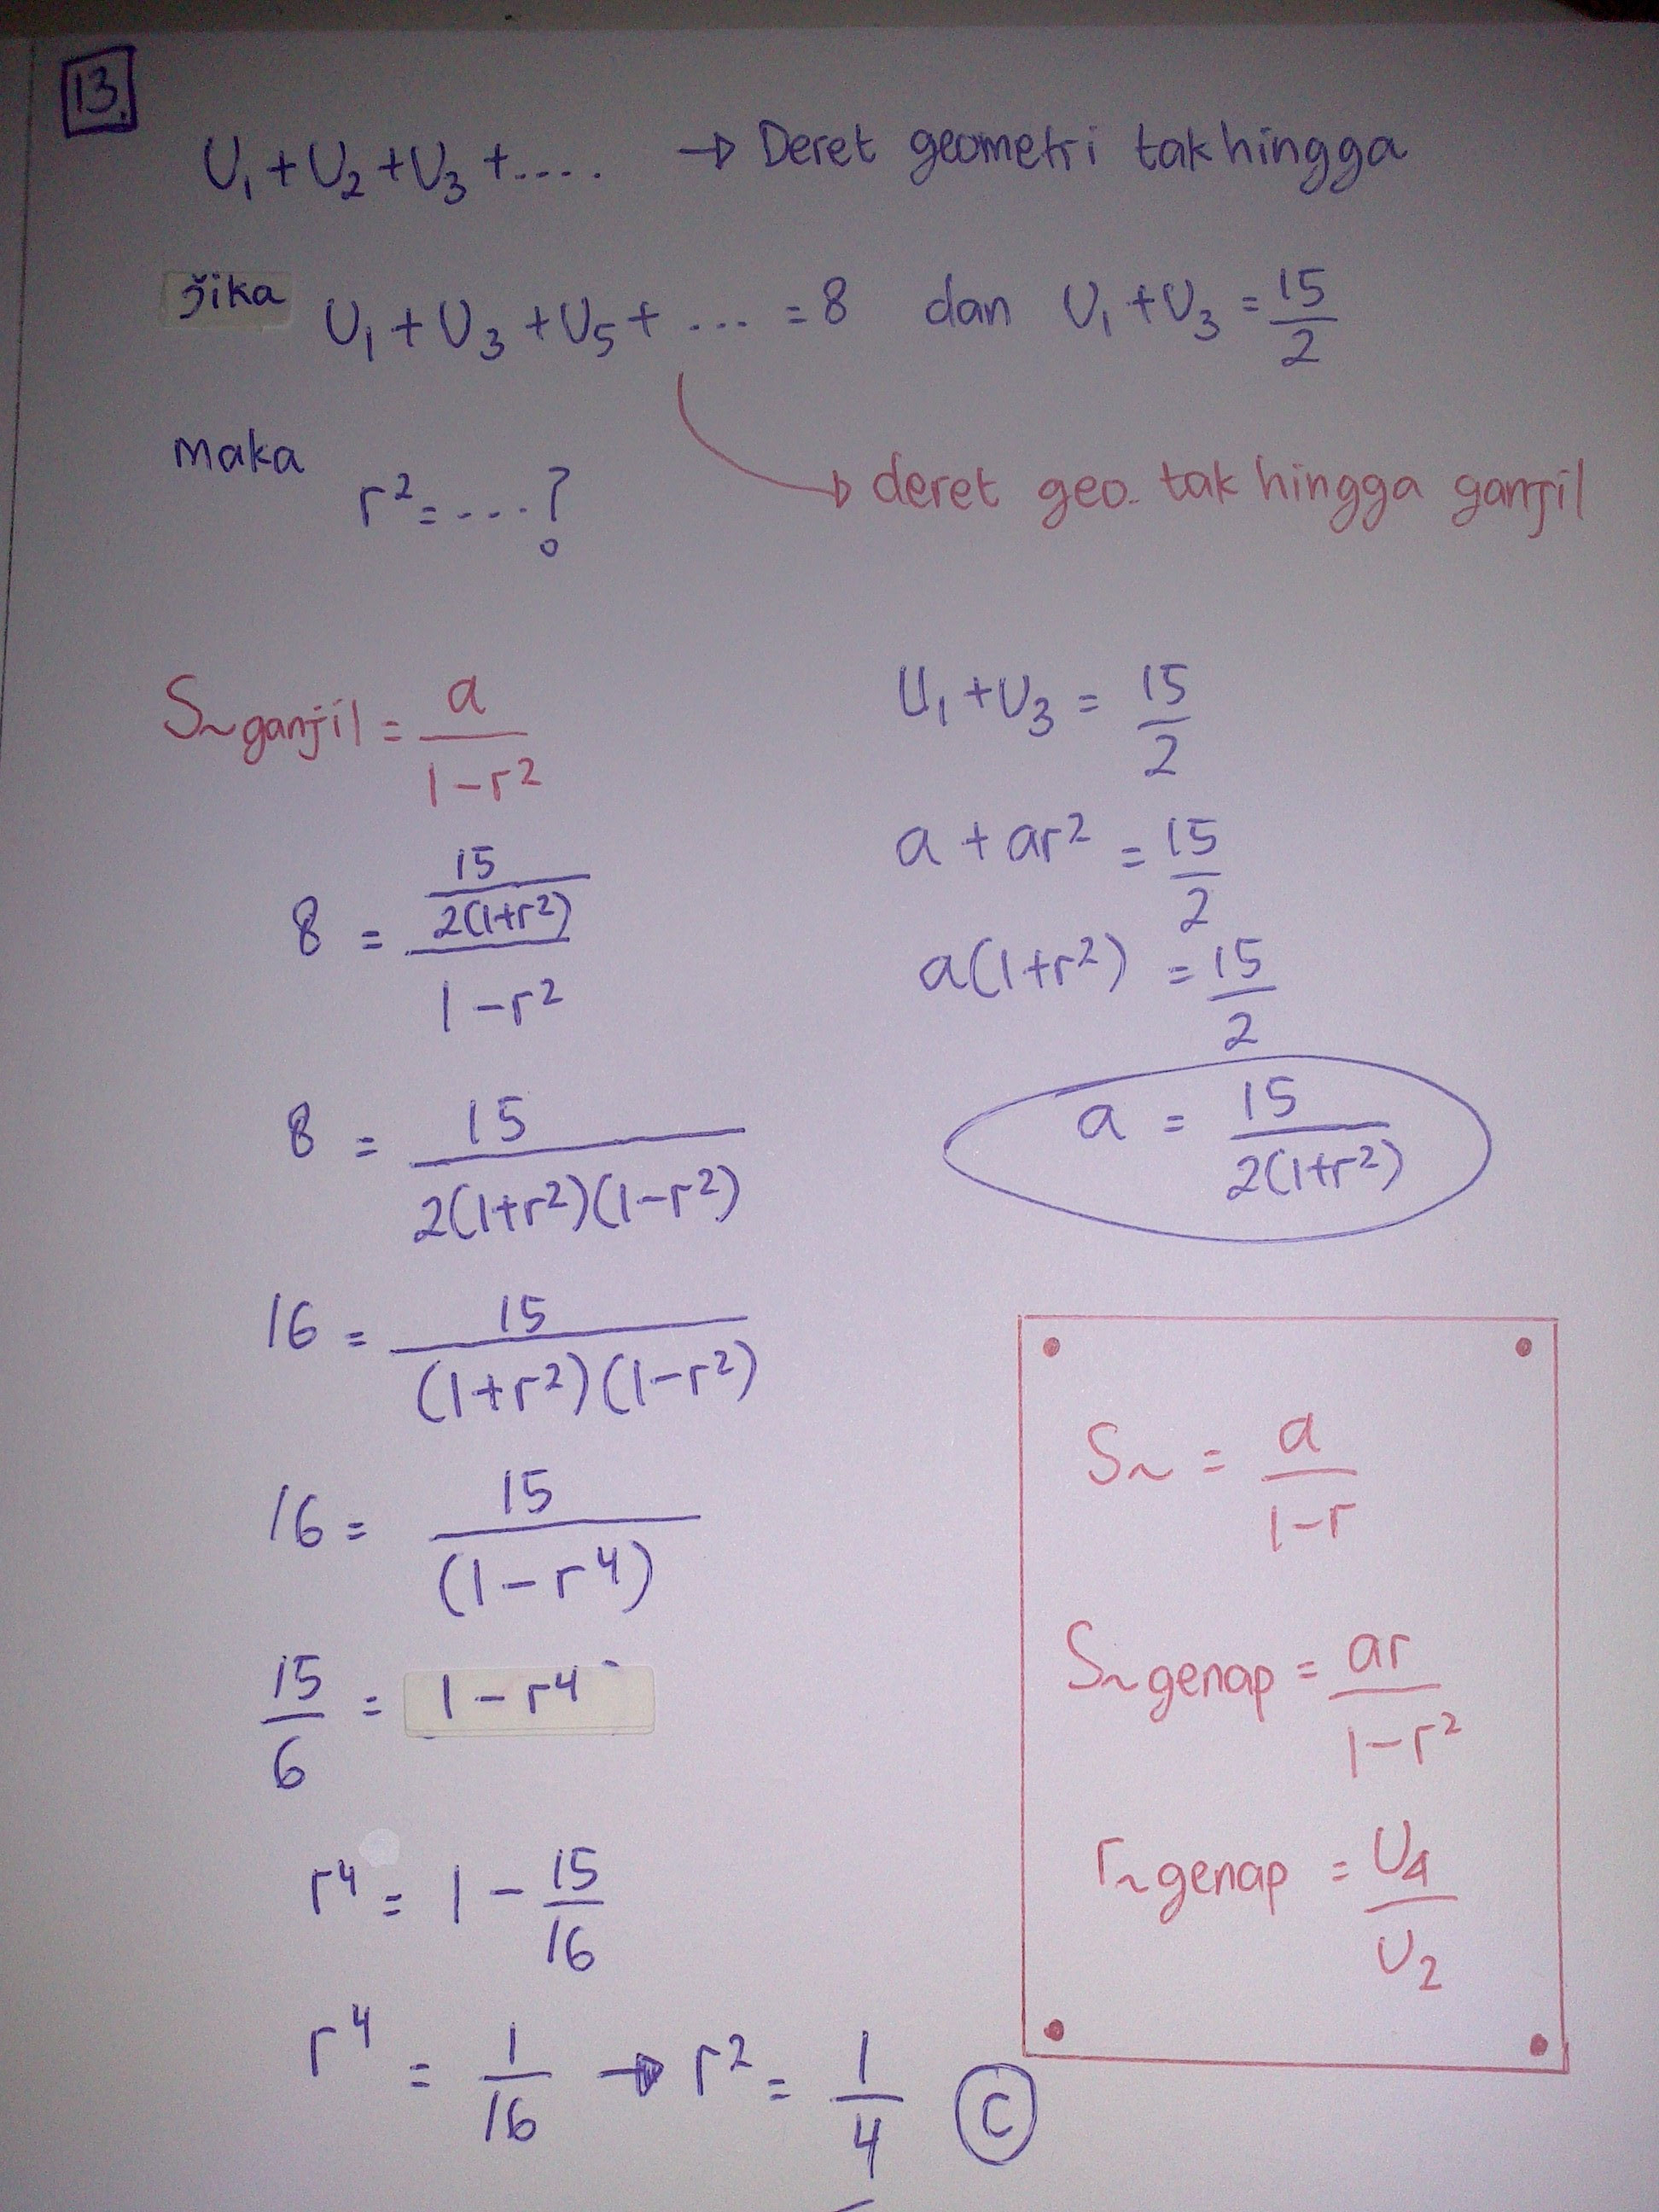 13.
U₁ + U₂ + U₃ + .... → Deret geometri tak hingga
Jika U₁ + U₃ + U₅ + ... = 8 dan U₁ + U₃ = 15/2
maka r² = ....?
→ deret geo. tak hingga ganjil
S~ganjil = a/(1-r²)
8 = (15/(2(1+r²)))/(1-r²)
8 = 15/(2(1+r²)(1-r²))
16 = 15/((1+r²)(1-r²))
16 = 15/((1-r⁴))
15/6 = 1-r⁴
r⁴ = 1 - 15/16
r⁴ = 1/16 → r² = 1/4 C
U₁ + U₃ = 15/2
a + ar² = 15/2
a(1+r²) = 15/2
a = 15/(2(1+r²))
S~ = a/(1-r)
S~genap = ar/(1-r²)
r~genap = U₄/U₂